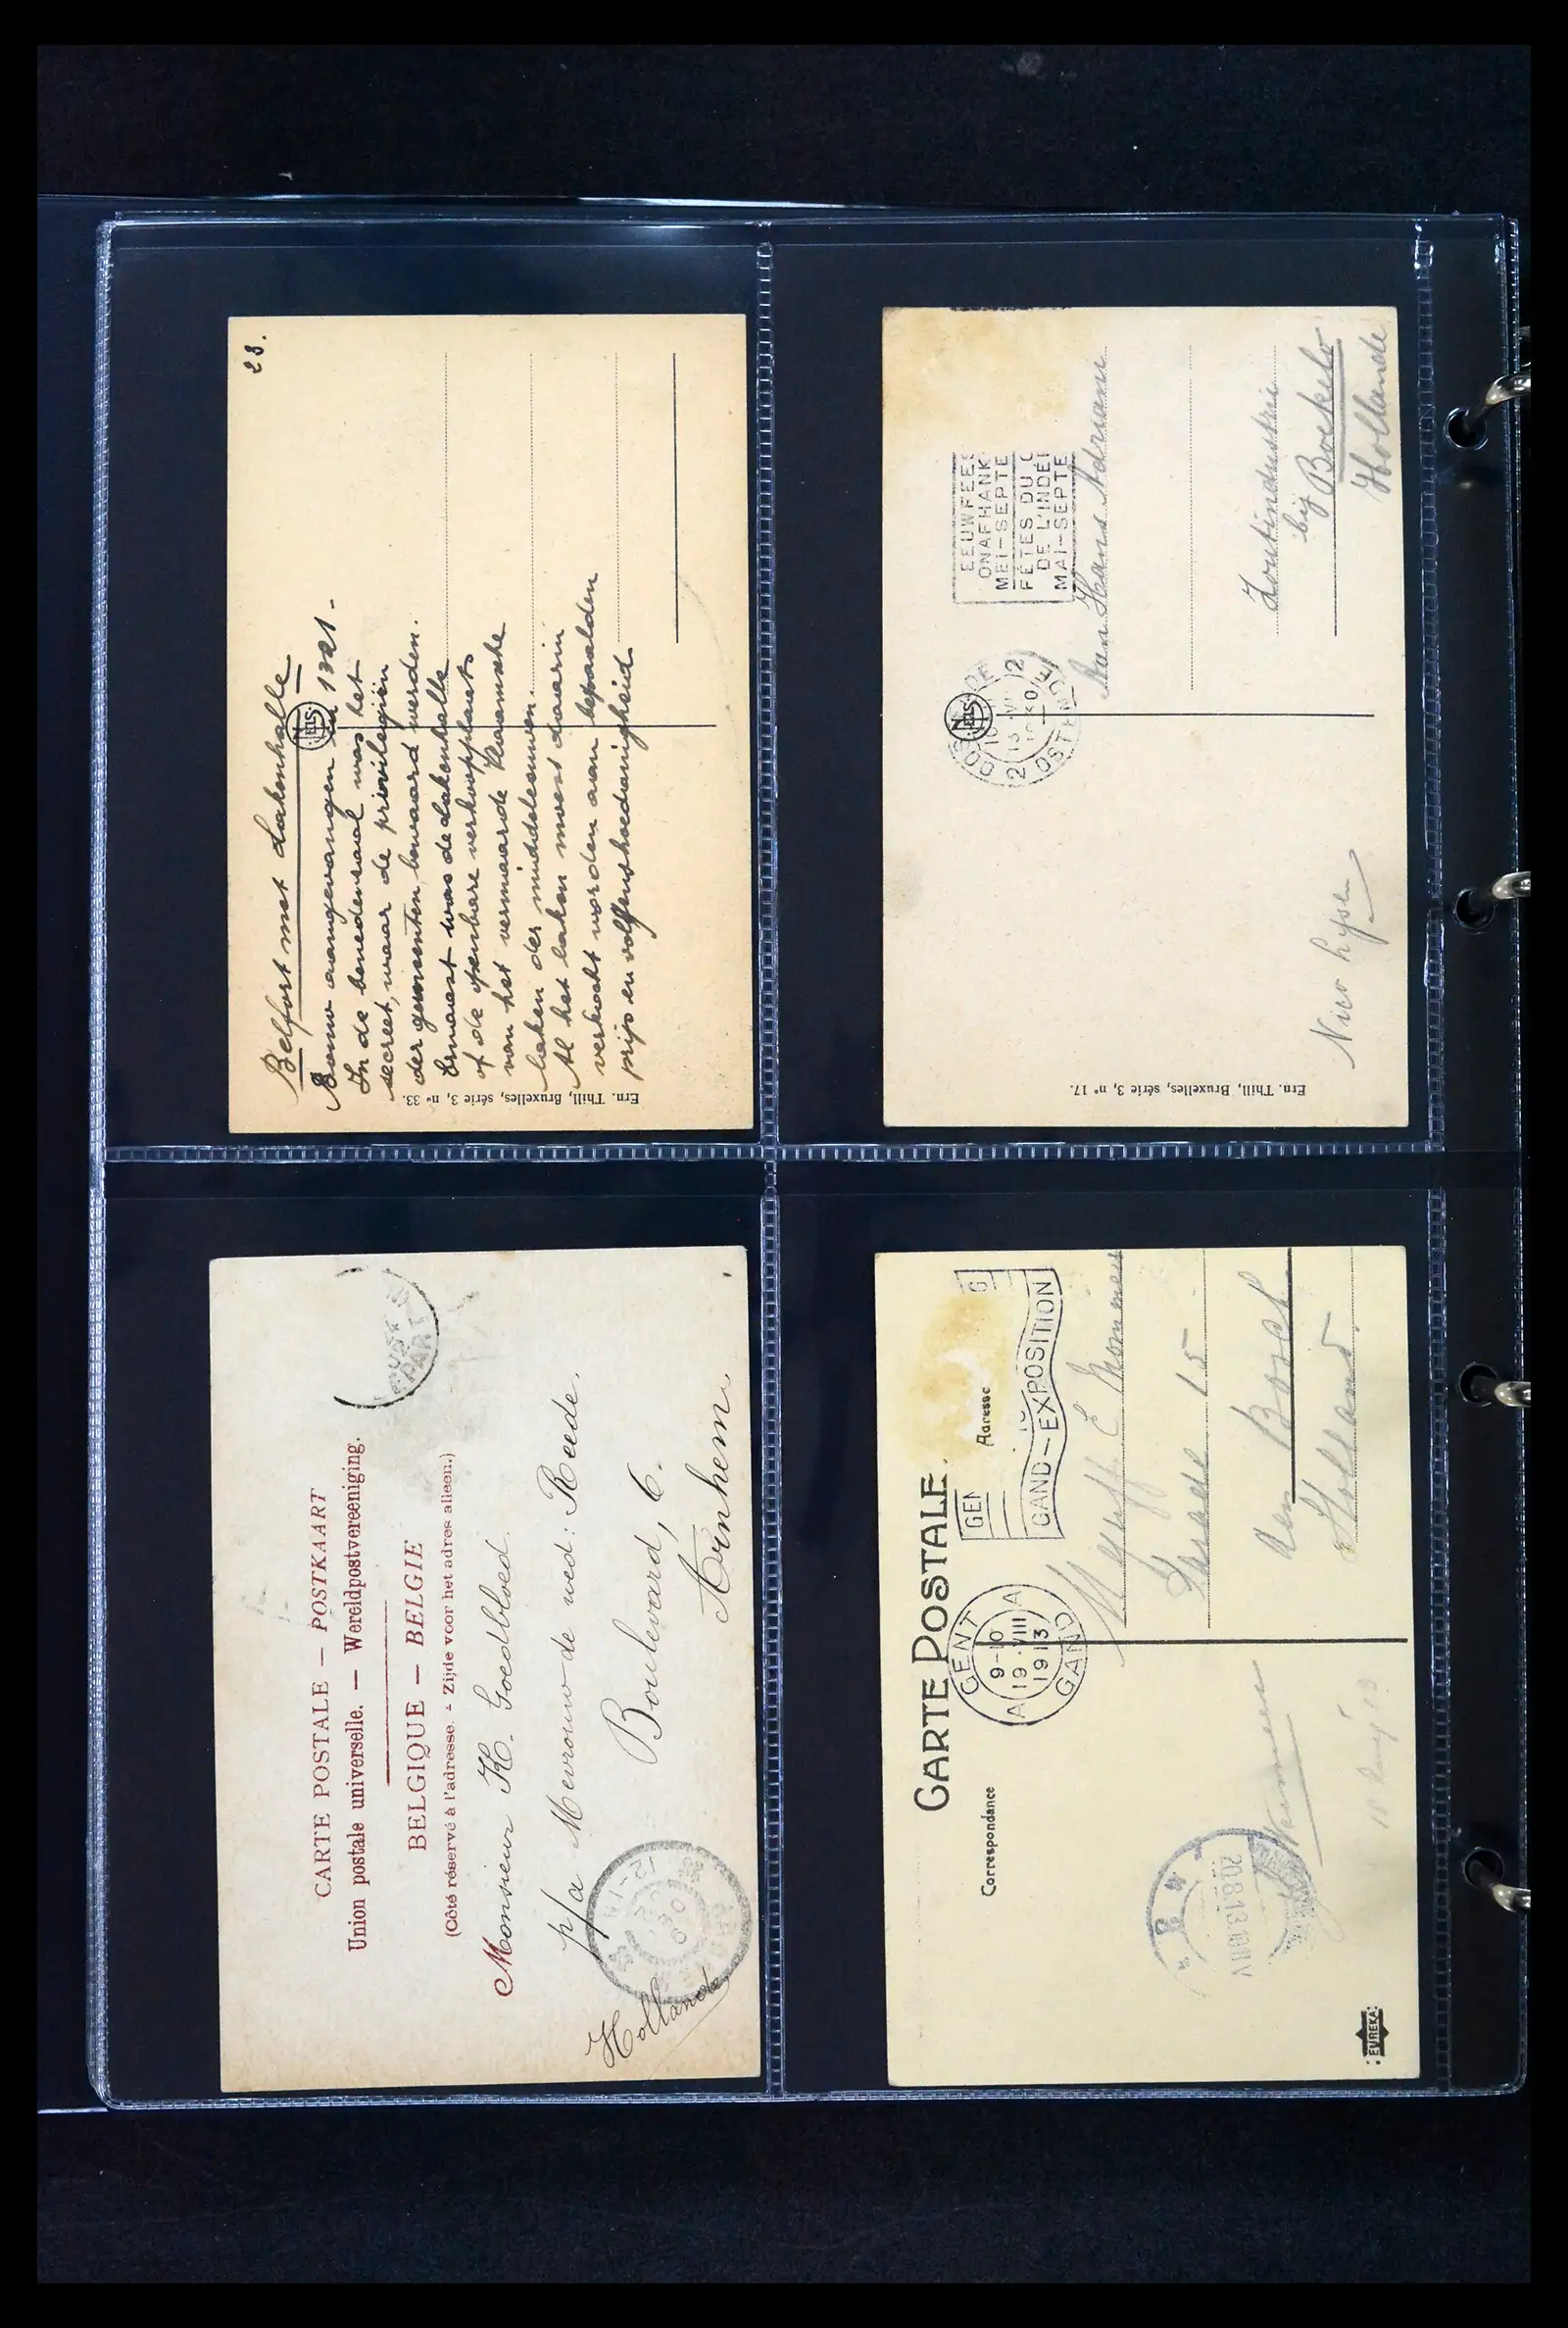 23.
Belfort met Lakenhalle
Eeuw aangevangen in 1321.-
In de benedenzaal was het
secreet, waar de privilegiën
der gemeenten bewaard werden.
Ernaast was de lakenhalle
of de openbare verkoopplaats
van het vermaarde Vlaamsche
laken der middeleeuwen.
Al het laken moest daarin
verkocht worden aan bepaalden
prijs en
NELS
Ern. Thill, Bruxelles, série 3, n° 33.
EEUWFEES
ONAFHANK
MEI-SEPTE
FÊTES DU C
DE L'INDÉ
MAI-SEPTE
OOSTENDE
2 2
OSTENDE
NELS
Aan Hans Adriani
Zoutindustrie
bij Boekelo
Hollande
Nico
Ern. Thill, Bruxelles, série 3, n° 17.
CARTE POSTALE — POSTKAART
Union postale universelle. — Wereldpostvereeniging.
BELGIQUE — BELGIE
(Côté réservé à l'adresse. - Zijde voor het adres alleen.)
DEPART
Monsieur K. Goedbloed.
p/a Mevrouw de wed: Reede.
Boulevard, 6.
Arnhem.
Hollande
CARTE POSTALE.
Correspondance
Adresse
GEN
G
GAND-EXPOSITION
GENT
A 9-10 A
19 VIII
1913
GAND
Mejuff E
15
den Bosch
Holland.
20.8.13.10-11V
EUREKA